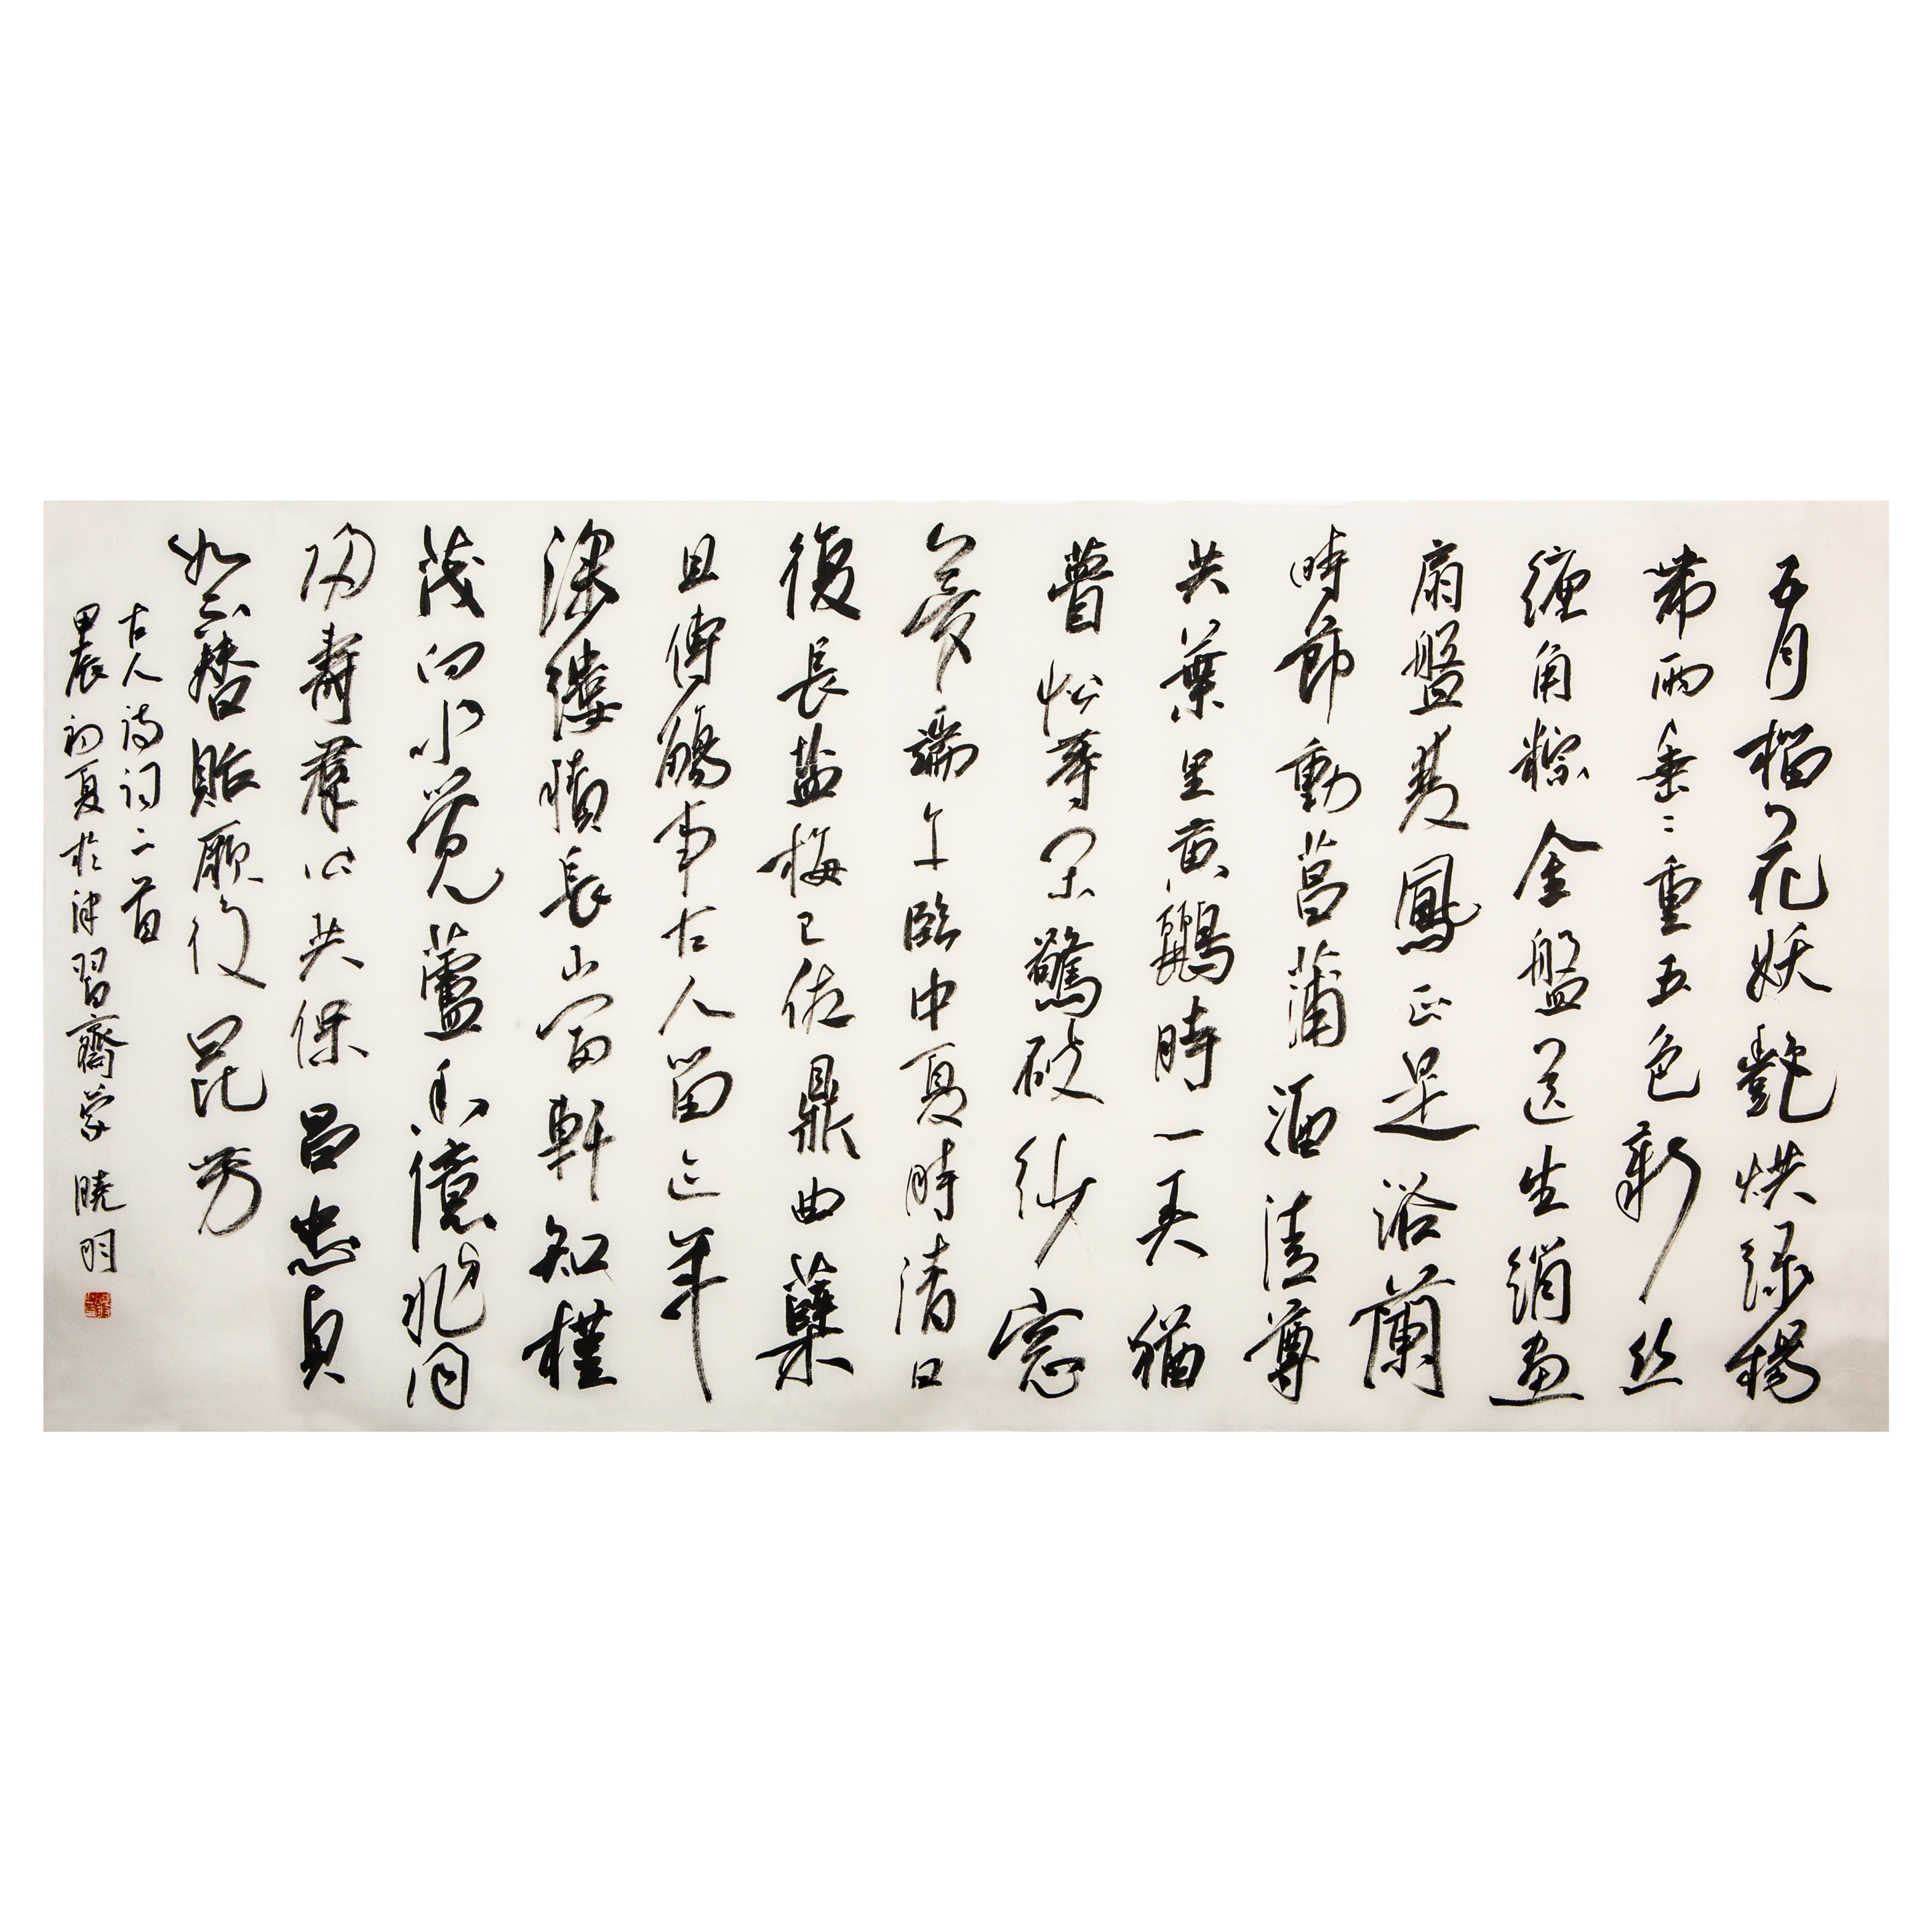 五月榴花妖艷烘綠楊
帶雨垂〻重五色新丝
缠角粽金盤送生綃畫
扇盤雙鳳正是浴蘭
時節動菖蒲酒清尊
共葉里黄鸝時一弄猶
瞢忪等闲驚破纱窓
夢端午臨中夏時清日
復長盐梅已佐鼎曲蘖
且傳觴事古人留迹年
深縷積長当軒知槿
茂向水覺蘆香億兆同
歸壽羣公共保昌忠貞
如不替貽厥後昆芳
古人诗词二首
甲辰初夏於津習齋学曉明